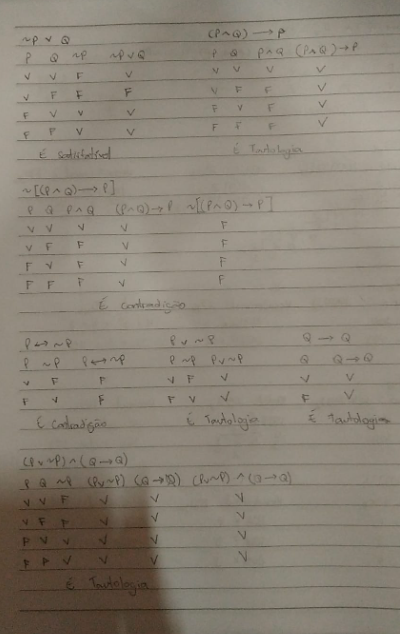 ~P v Q
P Q ~P ~P v Q
V V F V
V F F F
F V V V
F F V V
É Satisfatível
(P ∧ Q) → P
P Q P ∧ Q (P ∧ Q) → P
V V V V
V F F V
F V F V
F F F V
É Tautologia
~[(P ∧ Q) → P]
P Q P ∧ Q (P ∧ Q) → P ~[(P ∧ Q) → P]
V V V V F
V F F V F
F V F V F
F F F V F
É Contradição
P ↔ ~P
P ~P P ↔ ~P
V F F
F V F
É Contradição
P v ~P
P ~P P v ~P
V F V
F V V
É Tautologia
Q → Q
Q Q → Q
V V
F V
É Tautologia
(P v ~P) ∧ (Q → Q)
P Q ~P (P v ~P) (Q → Q) (P v ~P) ∧ (Q → Q)
V V F V V V
V F F V V V
F V V V V V
F F V V V V
É Tautologia